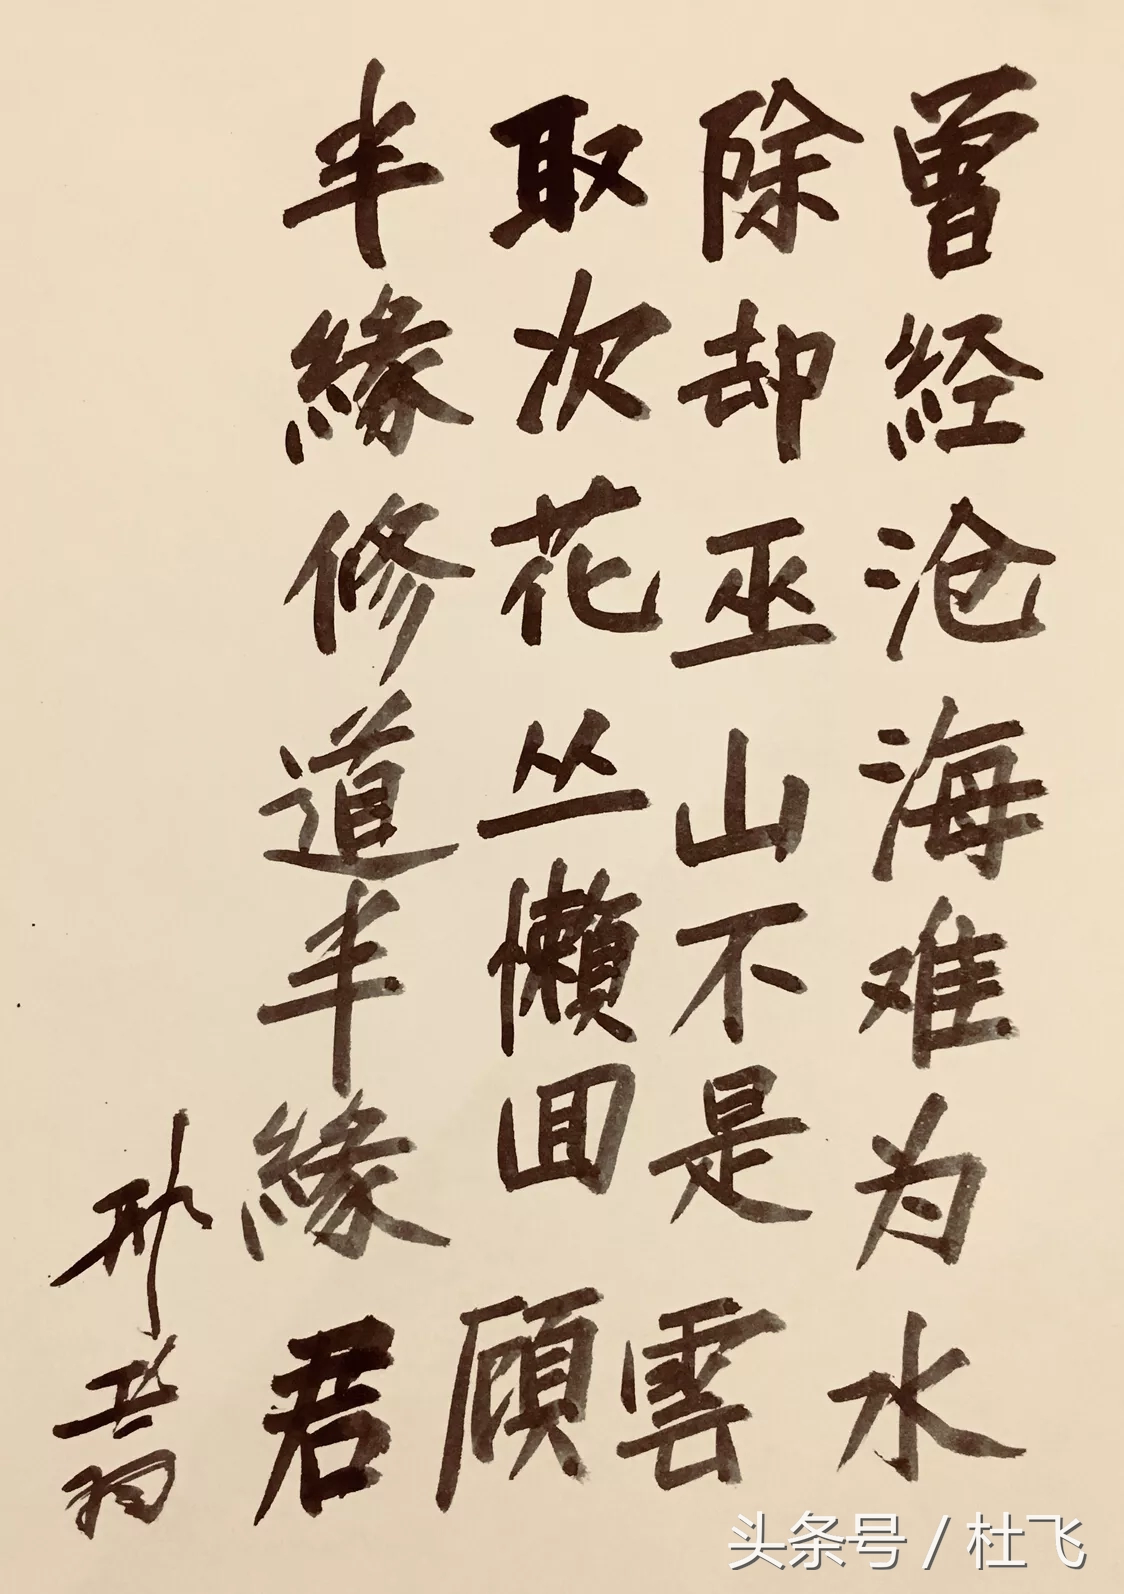 曾经沧海难为水
除却巫山不是雲
取次花丛懶回顧
半緣修道半緣君
头条号 / 杜飞